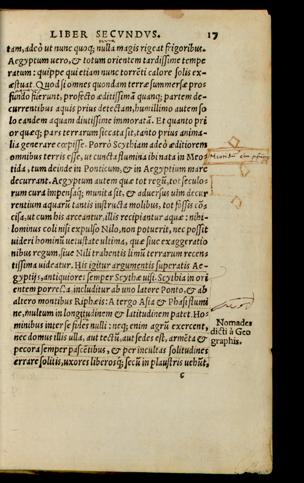 LIBER SECVNDVS. 17
tam, adeò ut nunc quoq; nulla magis rigeat frigoribus.
Aegyptum uero, & totum orientem tardissime tempe
ratum: quippe qui etiam nunc torrēti calore solis ex=
æstuat. Quod si omnes quondam terræ summersæ pro
fundo fuerunt, profecto æditissimā quanq; partem de=
currentibus aquis detectam, humillimo autem so
lo eandem aquam diutissime immoratā. Et quanto pri
or quæq; pars terrarum siccata sit, tanto prius anima=
lia generare cœpisse. Porrò Scythiam adeò æditiorem
omnibus terris esse, ut cuncta flumina ibi nata in Meo
tida, tum deinde in Ponticum, & in Aegyptium mare
decurrant. Aegyptum autem quæ tot regū, tot seculo=
rum cura impensaq; munita sit, & aduersus uim decur
rentium aquarū tantis instructa molibus, tot fossis cōn
cisa, ut cum his arceantur, illis recipiantur aquæ: nihi=
lominus coli nisi expulso Nilo, non potuerit, nec possit
uideri hominū uetustate ultima, quæ siue exaggeratio
nibus regum, siue Nili trahentis limū terrarum recen=
tissima uideatur. His igitur argumentis superatis Ae=
gyptijs, antiquiores semper Scythæ uisi. Scythia in ori
entem porrecta includitur ab uno latere Ponto, & ab
altero montibus Riphæis: A tergo Asia & Phasi flumi
ne, multum in longitudinem & latitudinem patet. Ho=
minibus inter se fides nulli: neq; enim agrū exercent,
nec domus illis ulla, aut tectū, aut sedes est, armēta &
pecora semper pascētibus, & per incultas solitudines
errare solitis, uxores liberosq; secū in plaustris uehūt,
Nomades
dicti à Geo
graphis.
c